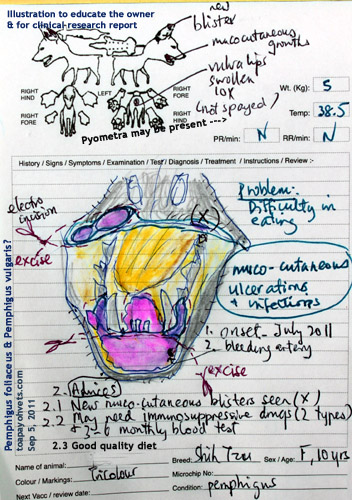 Illustration to educate the owner
& for clinical research report
new
blister
mucocutaneous
growths
vulva lips
swollen
10X
(not spayed)
RIGHT
HIND
LEFT
RIGHT
FORE
RIGHT
FORE
RIGHT
HIND
Wt. (Kg): 5
Temp: 38.5
Pyometra may be present --->
PR/min: N
RR/min: N
History / Signs / Symptoms / Examination / Test / Diagnosis / Treatment / Instructions / Review :-
electro
incision
excise
(x)
Problem:
Difficulty in
eating
muco-cutaneous
ulcerations
+ infections
1. onset - July 2011
2. bleeding artery
excise
2. Advices
2.1 New muco-cutaneous blisters seen (x)
2.2 May need immunosuppressive drugs (2 types)
& 2-6 monthly blood test
2.3 Good quality diet
Pemphigus foliaceus & Pemphigus vulgaris?
toapayohvets.com
Sep 5, 2011
Name of animal:
Breed: Shih Tzu
Sex / Age: F, 10 yrs
Colour / Markings: Tricolour
Microchip No:
Next Vacc / review date:
Condition: pemphigus